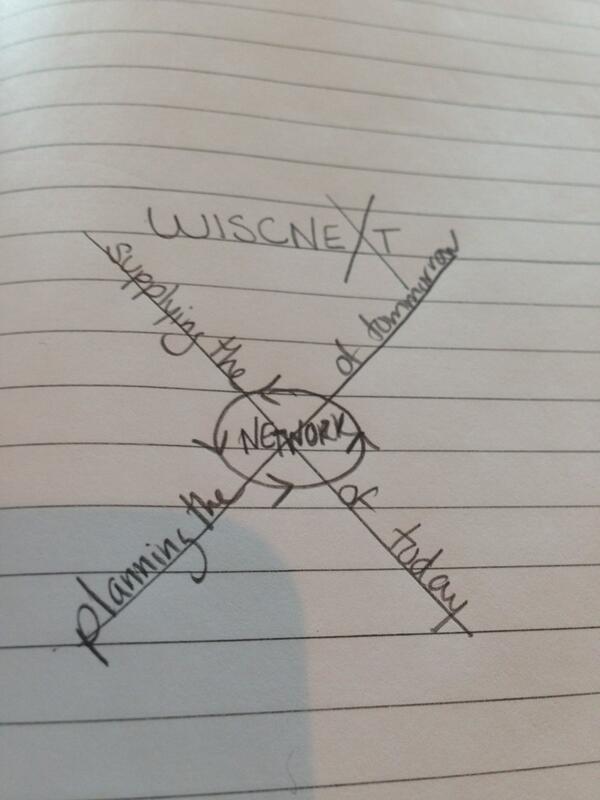 WISCNEXT
supplying the
of tommorow
NETWORK
planning the
of today